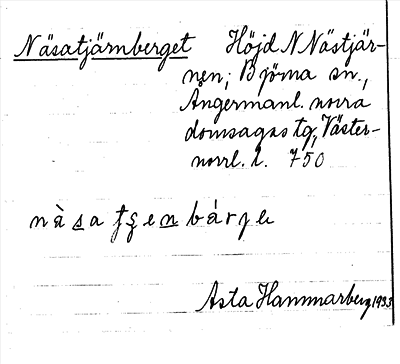 Näsatjärnberget Höjd N Nästjär-
nen; Björna sn.,
Ångermanl. norra
domsagas tg, Väster-
norrl. l. 750
Asta Hammarberg 1933